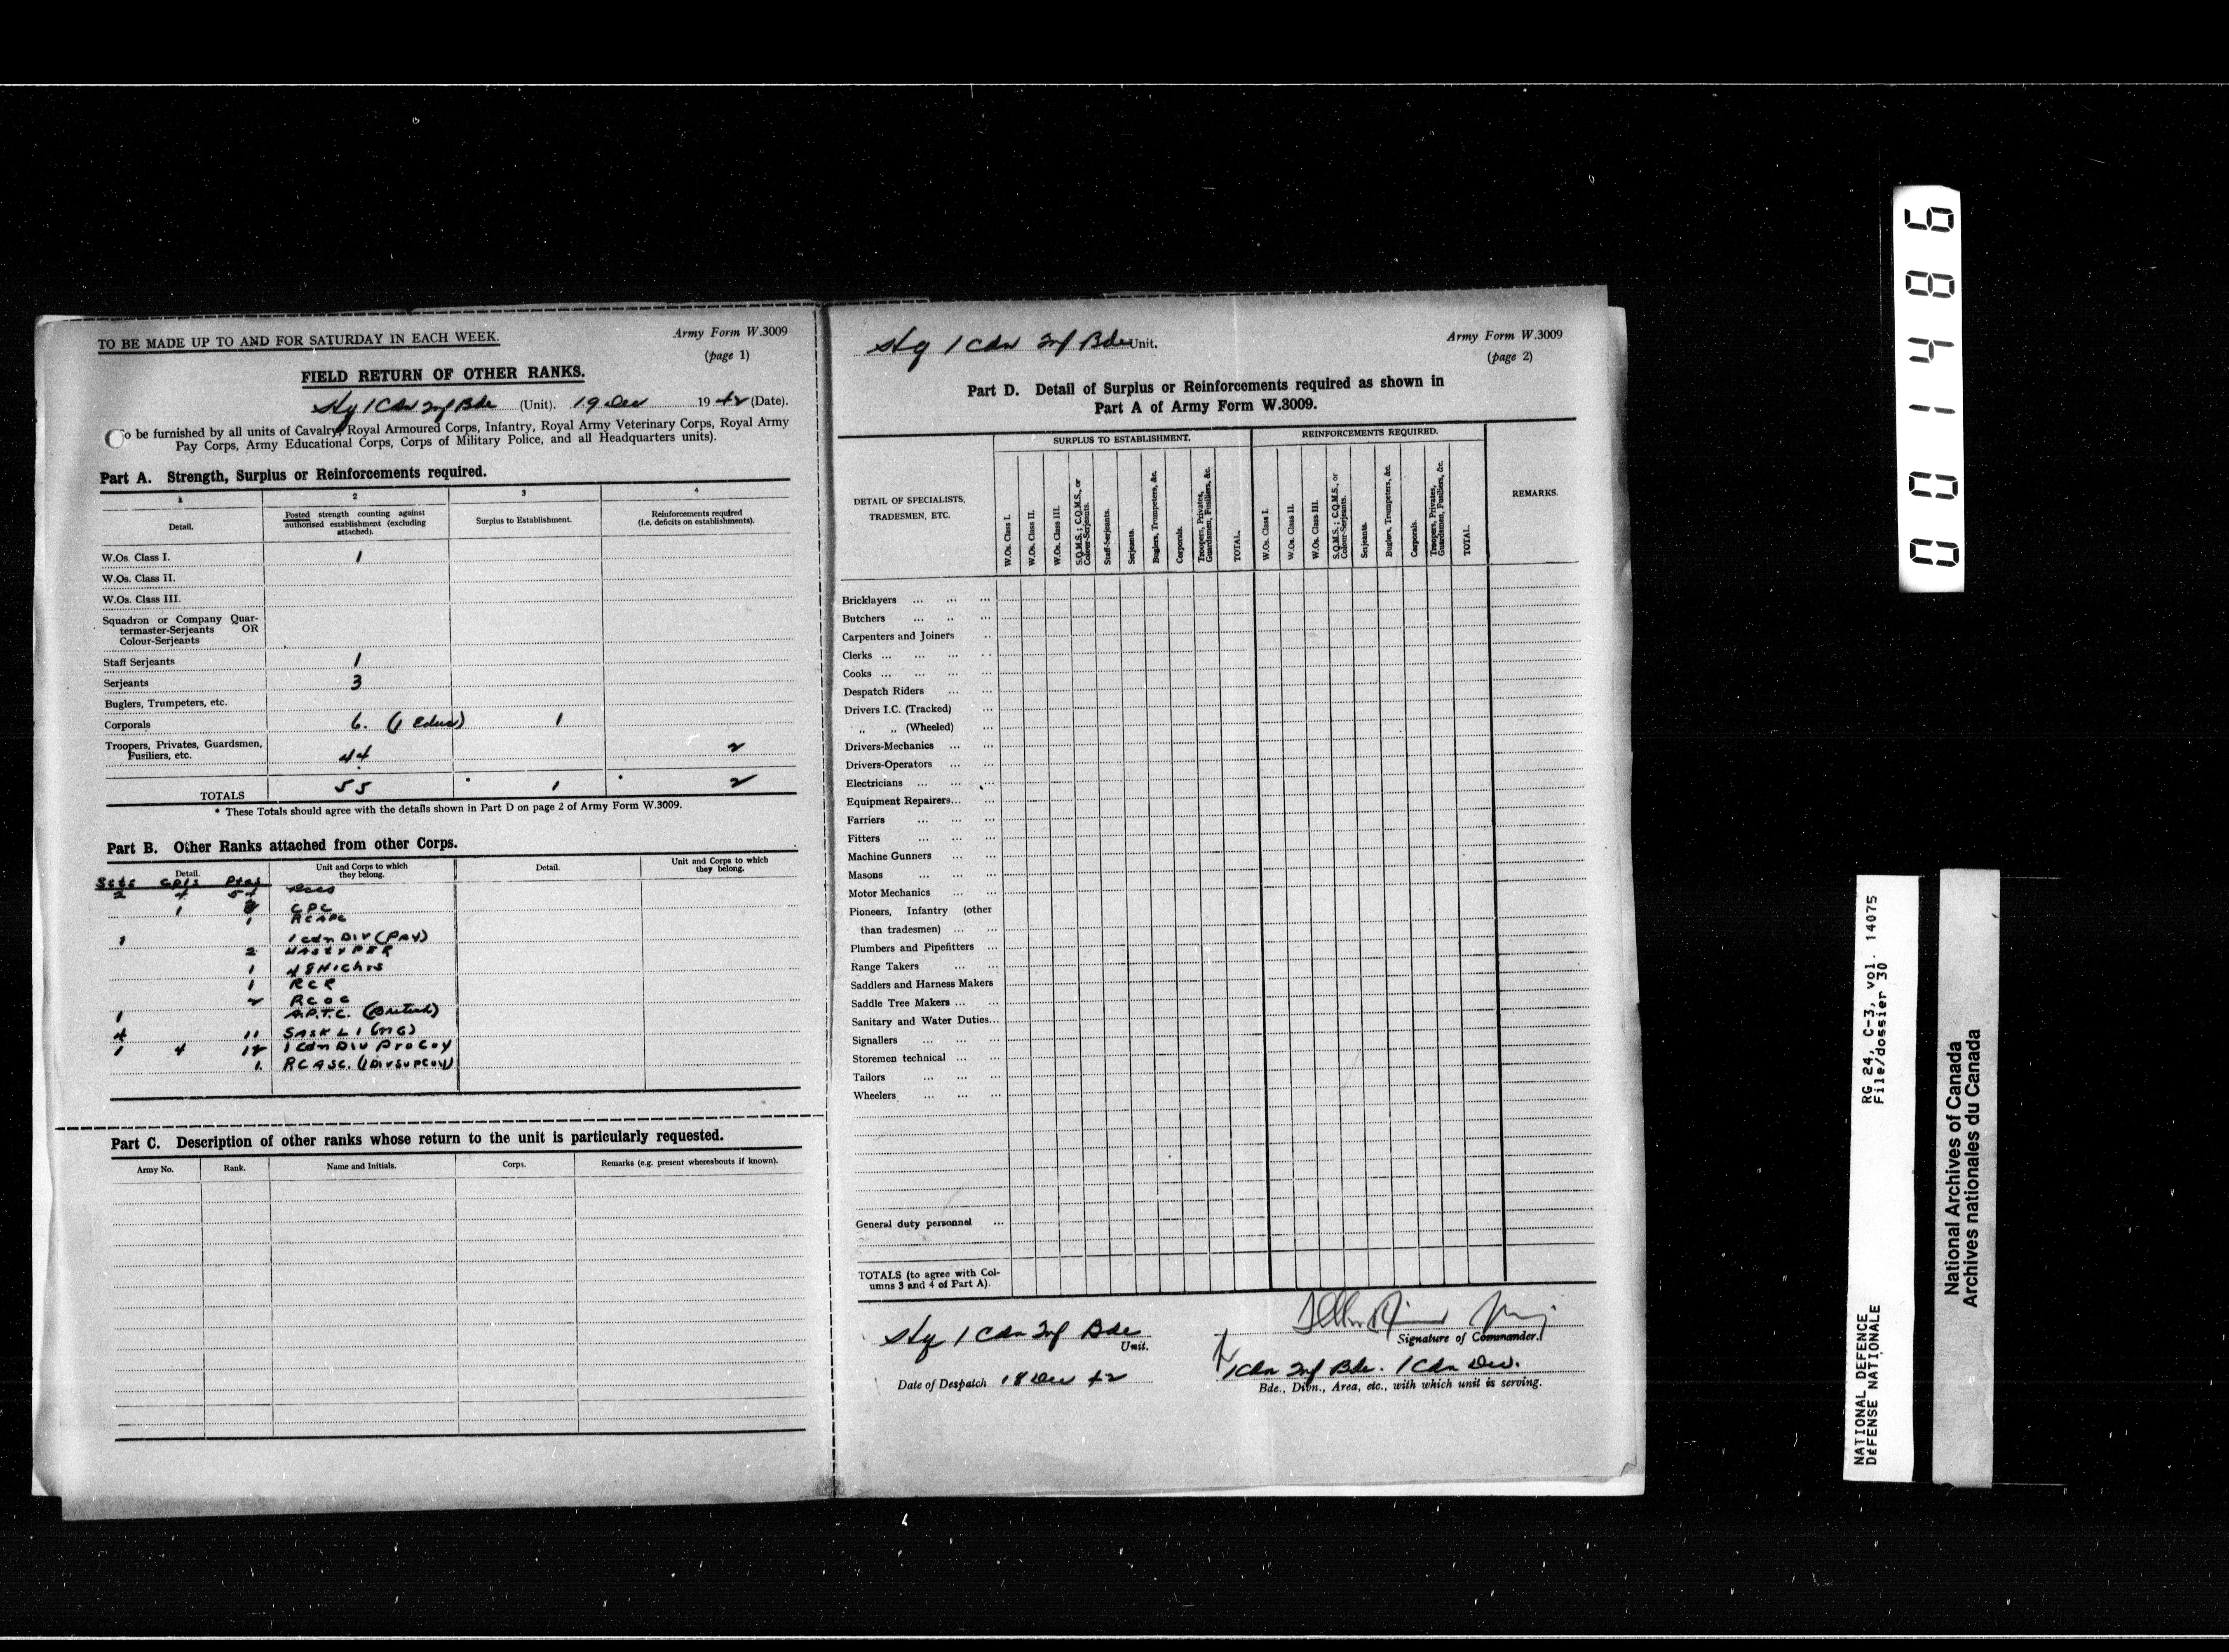 TO BE MADE UP TO AND FOR SATURDAY IN EACH WEEK.
Army Form W.3009
(page 1)
FIELD RETURN OF OTHER RANKS.
Hq 1 Cdn Inf Bde (Unit). 19 Dec 1942 (Date).
To be furnished by all units of Cavalry, Royal Armoured Corps, Infantry, Royal Army Veterinary Corps, Royal Army
Pay Corps, Army Educational Corps, Corps of Military Police, and all Headquarters units).
Part A. Strength, Surplus or Reinforcements required.
1 2 3 4
Detail. Posted strength counting against authorised establishment (excluding attached). Surplus to Establishment. Reinforcements required (i.e. deficits on establishments).
W.Os. Class I. 1
W.Os. Class II.
W.Os. Class III.
Squadron or Company Quar-
termaster-Serjeants OR
Colour-Serjeants
Staff Serjeants 1
Serjeants 3
Buglers, Trumpeters, etc.
Corporals 6. (1 Educ) 1
Troopers, Privates, Guardsmen,
Fusiliers, etc. 44 2
TOTALS 55 * 1 * 2
* These Totals should agree with the details shown in Part D on page 2 of Army Form W.3009.
Part B. Other Ranks attached from other Corps.
Detail. Unit and Corps to which they belong. Detail. Unit and Corps to which they belong.
Sgts Cpls Ptes
2 4
1 CPC
1 RCAPC
1 1 Cdn Div (Pay)
2 HAST & PER
1 48 Highrs
1 RCR
2 RCOC
1 A.P.T.C. (British)
4 11 SASK L I (MG)
1 4 12 1 Cdn Div Pro Coy
1. RCASC. (1 Div Sup Coy)
Part C. Description of other ranks whose return to the unit is particularly requested.
Army No. Rank. Name and Initials. Corps. Remarks (e.g. present whereabouts if known).
Hq 1 Cdn Inf Bde Unit.
Army Form W.3009
(page 2)
Part D. Detail of Surplus or Reinforcements required as shown in
Part A of Army Form W.3009.
DETAIL OF SPECIALISTS,
TRADESMEN, ETC.
SURPLUS TO ESTABLISHMENT.
W.Os. Class I.
W.Os. Class II.
W.Os. Class III.
S.Q.M.S.; C.Q.M.S., or Colour-Serjeants.
Staff-Serjeants.
Serjeants.
Buglers, Trumpeters, &c.
Corporals.
Troopers, Privates, Guardsmen, Fusiliers, &c.
TOTAL.
REINFORCEMENTS REQUIRED.
W.Os. Class I.
W.Os. Class II.
W.Os. Class III.
S.Q.M.S.; C.Q.M.S., or Colour-Serjeants.
Serjeants.
Buglers, Trumpeters, &c.
Corporals.
Troopers, Privates, Guardsmen, Fusiliers, &c.
TOTAL.
REMARKS.
Bricklayers
Butchers
Carpenters and Joiners
Clerks
Cooks
Despatch Riders
Drivers I.C. (Tracked)
„ „ (Wheeled)
Drivers-Mechanics
Drivers-Operators
Electricians
Equipment Repairers
Farriers
Fitters
Machine Gunners
Masons
Motor Mechanics
Pioneers, Infantry (other
than tradesmen)
Plumbers and Pipefitters
Range Takers
Saddlers and Harness Makers
Saddle Tree Makers
Sanitary and Water Duties
Signallers
Storemen technical
Tailors
Wheelers
General duty personnel
TOTALS (to agree with Col-
umns 3 and 4 of Part A).
Hq 1 Cdn Inf Bde
Unit.
Signature of Commander.
Date of Despatch 18 Dec 42
1 Cdn Inf Bde. 1 Cdn Div.
Bde., Divn., Area, etc., with which unit is serving.
001486
NATIONAL DEFENCE RG 24, C-3, vol. 14075
DÉFENSE NATIONALE File/dossier 30
National Archives of Canada
Archives nationales du Canada